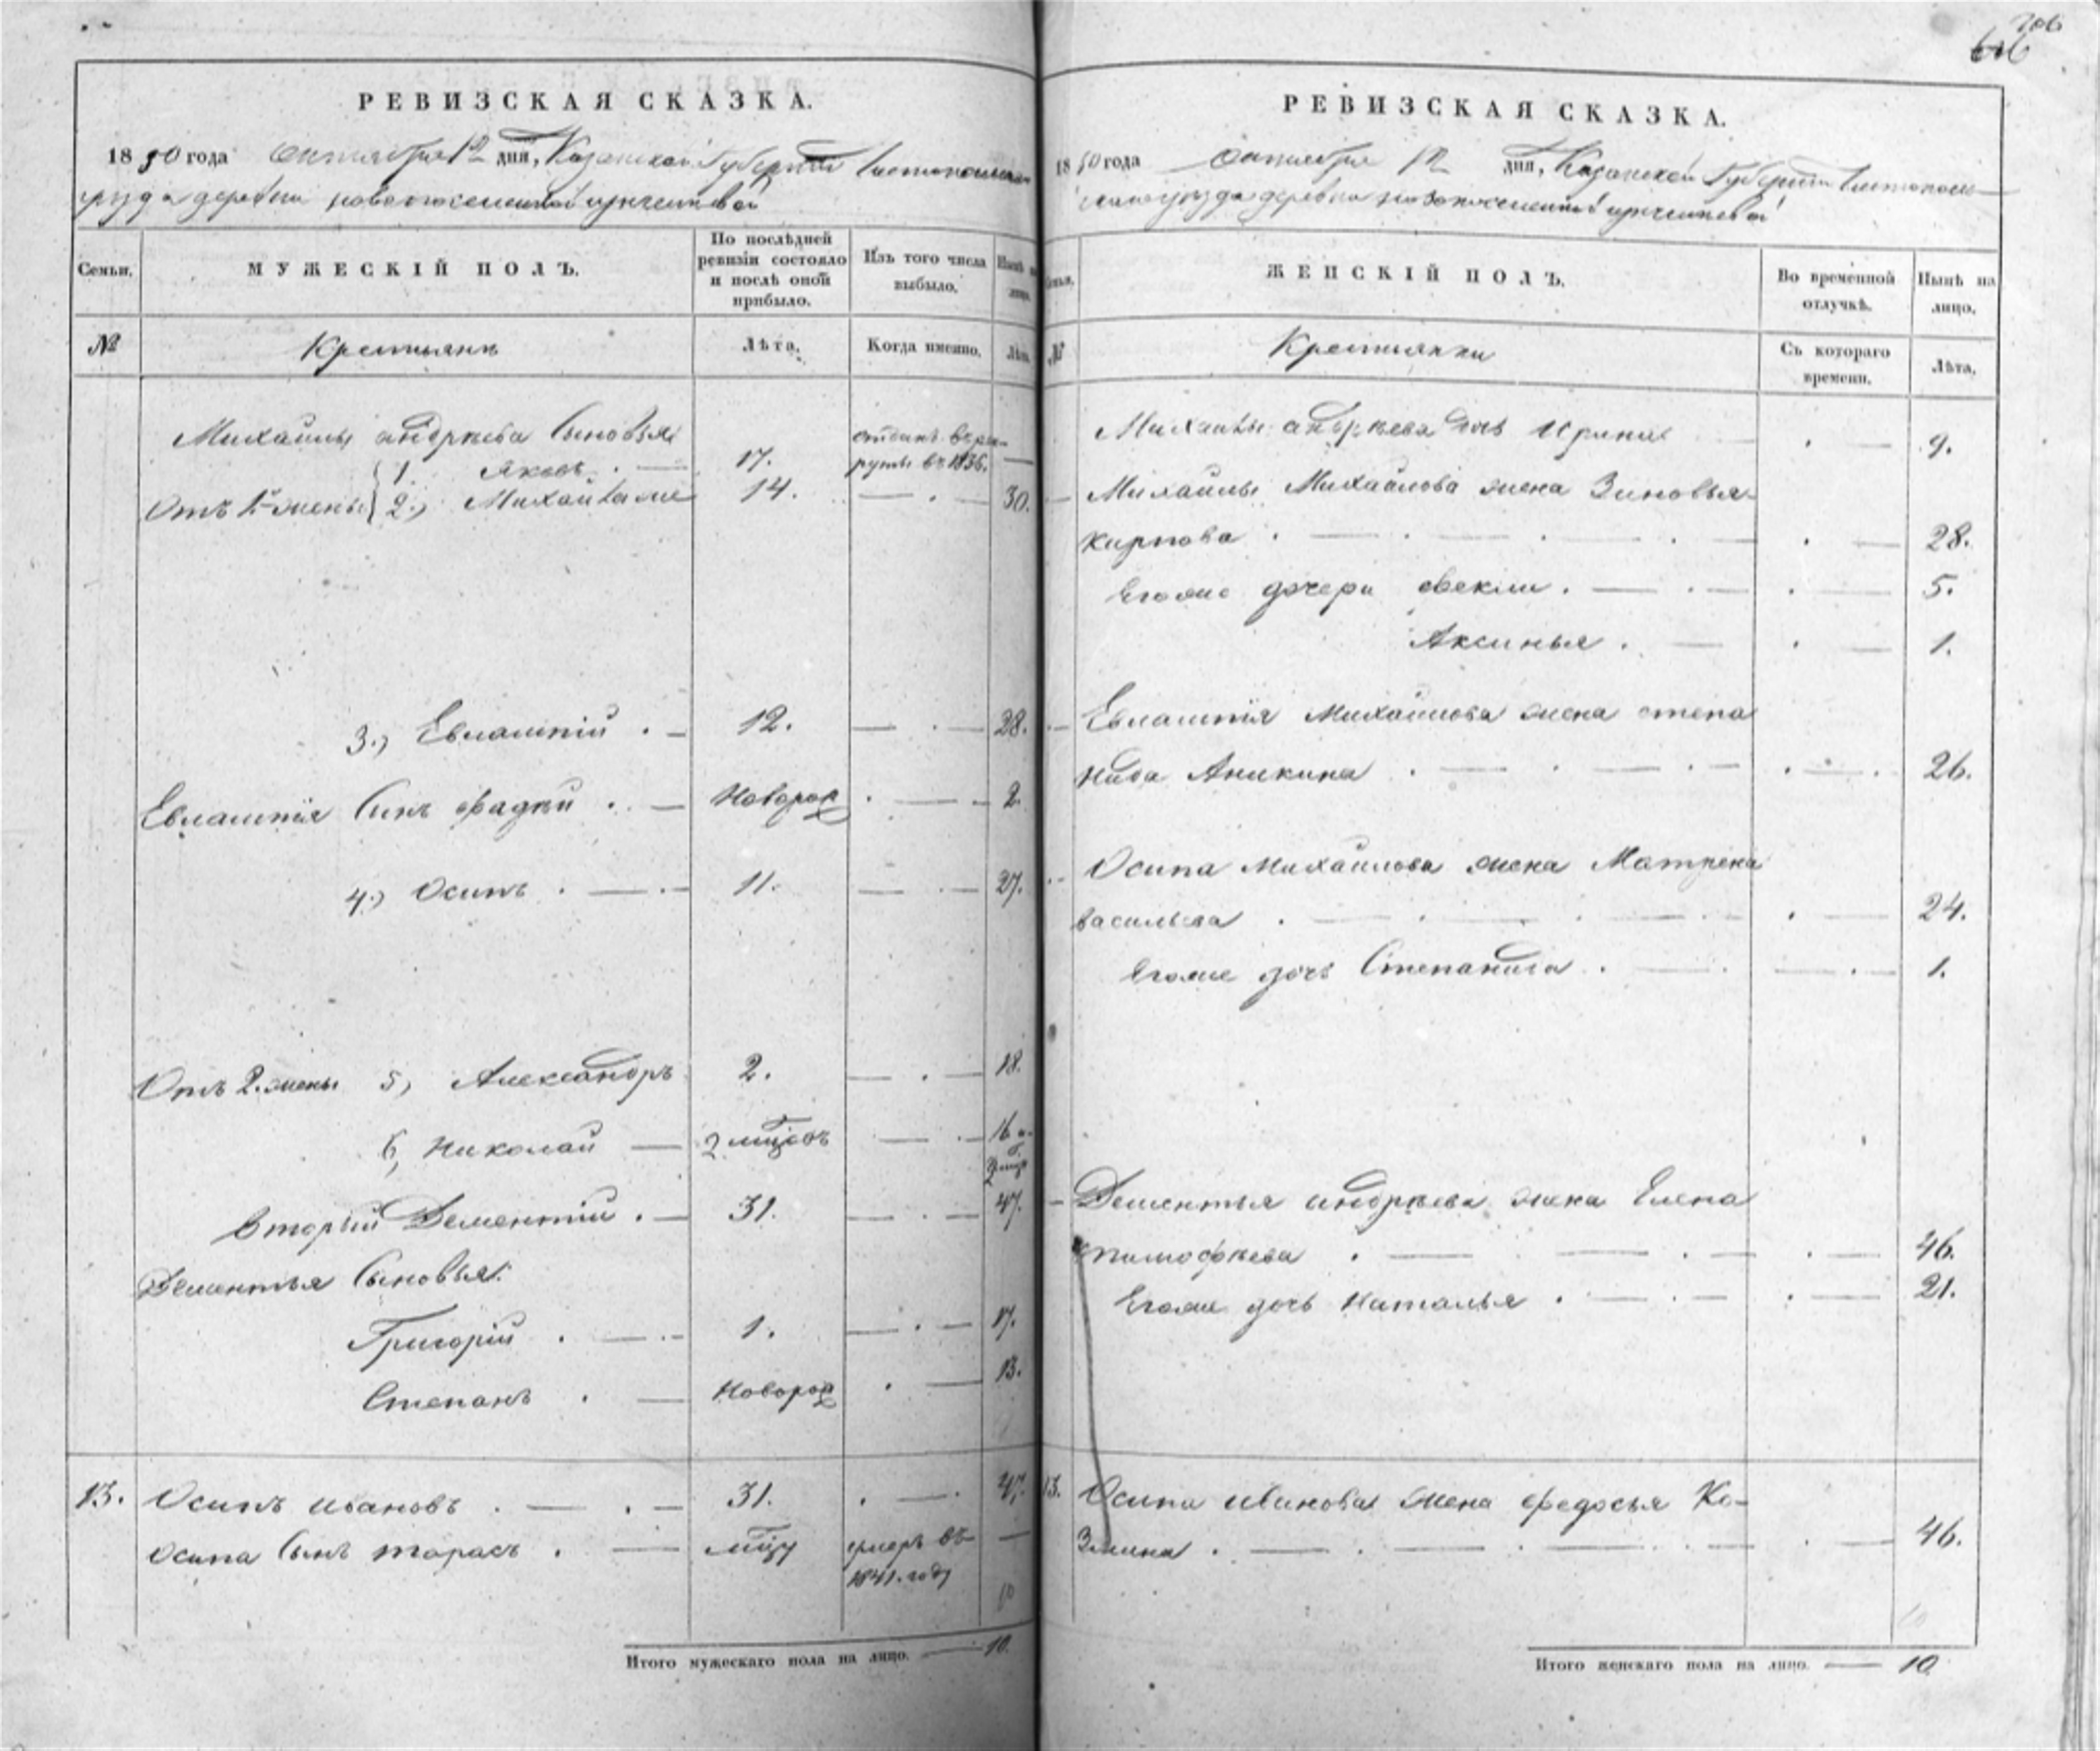 706
606
РЕВИЗСКАЯ СКАЗКА.
1850 года Октября 12 дня, Казанской Губернии
уезда деревни новопоселенной
Семьи. МУЖЕСКІЙ ПОЛЪ. По послѣдней ревизіи состояло и послѣ оной прибыло. Изъ того числа выбыло. Нынѣ на лицо.
№ Крестьянъ Лѣта. Когда именно. Лѣта.
Михайлы андрѣева Сыновья
1. Яковъ. 17. отданъ в рекруты въ 1836.
Отъ 1й жены 2.) Михайла 14. 30.
3.) Евлампій 12. 28.
Евлампія Сынъ Фадѣй Новорож 2.
4.) Осипъ 11. 27.
Отъ 2. жены 5) Александръ 2. 18.
6, Николай 2 мцовъ 16 2 мцв
Вторый Дементій 31. 47.
Дементья Сыновья:
Григорій 1. 17.
Степанъ Новорож 13.
13. Осипъ ивановъ 31. 47.
Осипа Сынъ тарасъ мцу умеръ въ 1841. году
10
Итого мужескаго пола на лицо. 10.
РЕВИЗСКАЯ СКАЗКА.
1850 года Октября 12 дня, Казанской Губернии
уезда деревни новопоселенной
Семьи. ЖЕНСКІЙ ПОЛЪ. Во временной отлучкѣ. Нынѣ на лицо.
№ Крестьянки Съ котораго времени. Лѣта.
Михайлы андрѣева дочь Ирина 9.
Михайлы Михайлова жена Зиновья
Карпова 28.
Егоже дочери Фекла. 5.
Аксинья. 1.
Евлампія Михайлова жена степа
нида Аникина 26.
Осипа Михайлова жена Матрена
васильева 24.
Егоже дочь Степанида. 1.
Дементья андрѣева жена Елена
тимофѣева 46.
Егоже дочь Наталья 21.
13. Осипа иванова жена Федосья Ко-
змина. 46.
10
Итого женскаго пола на лицо. 10